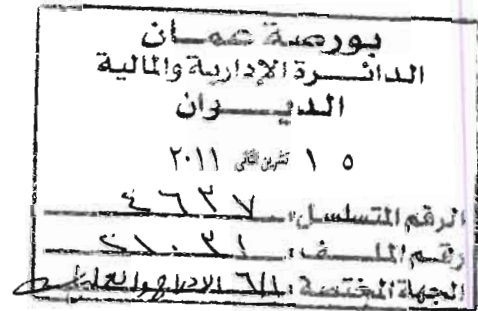 بورصة عمان
الدائرة الإدارية والمالية
الديوان
١٥ تشرين الثاني ٢٠١١
الرقم المتسلسل: ٤٦٢٧
رقم الملف: ٢١٠٣١
الجهة المختصة: الادراج